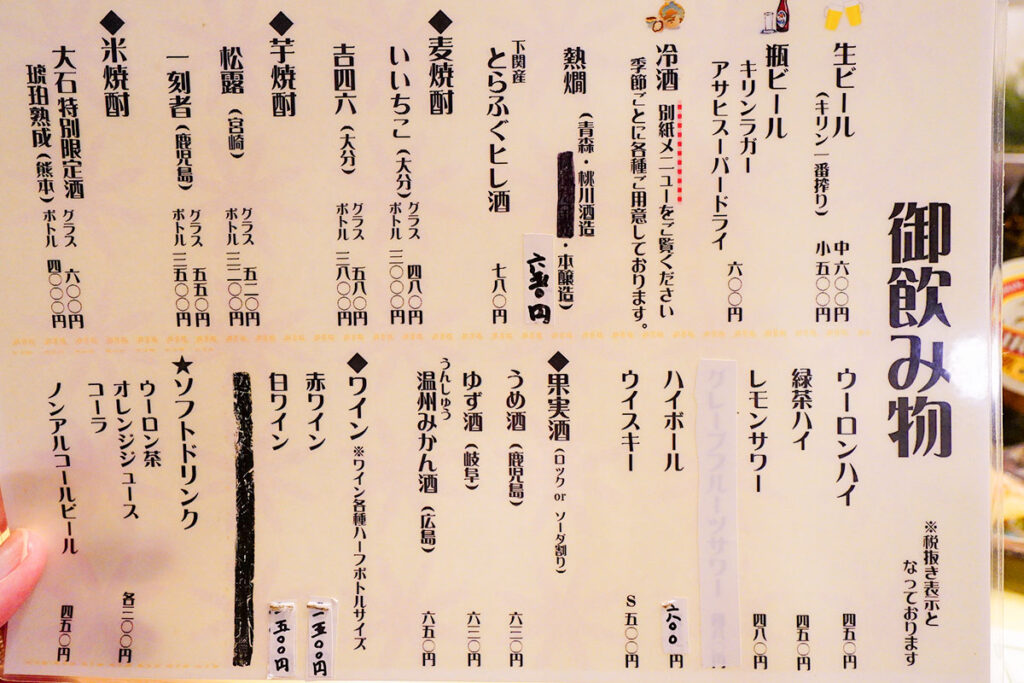 御飲み物
※税抜き表示と
なっております
生ビール
(キリン一番搾り)
中 六〇〇円
小 五〇〇円
瓶ビール
キリンラガー
アサヒスーパードライ
六〇〇円
冷酒 別紙メニューをご覧ください
季節ごとに各種ご用意しております。
熱燗
(青森・桃川酒造
・本醸造)
六五〇円
下関産
とらふぐヒレ酒 七八〇円
◆麦焼酎
いいちこ(大分)
グラス 四八〇円
ボトル 三〇〇〇円
吉四六(大分)
グラス 五八〇円
ボトル 三八〇〇円
◆芋焼酎
松露(宮崎)
グラス 五二〇円
ボトル 三二〇〇円
一刻者(鹿児島)
グラス 五五〇円
ボトル 三五〇〇円
◆米焼酎
大石特別限定酒
琥珀熟成(熊本)
グラス 六〇〇円
ボトル 四〇〇〇円
ウーロンハイ 四五〇円
緑茶ハイ 四五〇円
レモンサワー 四八〇円
グレープフルーツサワー
ハイボール 六〇〇円
ウイスキー S 五〇〇円
◆果実酒(ロック or ソーダ割り)
うめ酒(鹿児島) 六二〇円
ゆず酒(岐阜) 六二〇円
うんしゅう
温州みかん酒(広島) 六五〇円
◆ワイン ※ワイン各種ハーフボトルサイズ
赤ワイン 一五〇〇円
白ワイン 一五〇〇円
★ソフトドリンク
ウーロン茶
オレンジジュース
コーラ
各三〇〇円
ノンアルコールビール 四五〇円